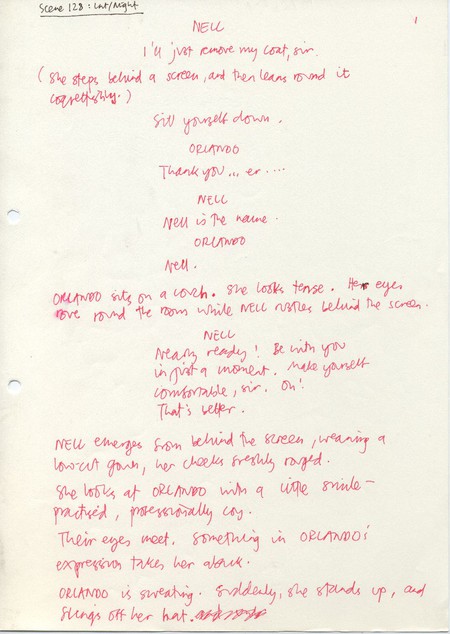 Scene 128: Int/Night
1
NELL
I'll just remove my coat, sir.
(She steps behind a screen, and then leans round it
coquettishly.)
Sit yourself down.
ORLANDO
Thank you... er....
NELL
Nell is the name.
ORLANDO
Nell.
ORLANDO sits on a couch. She looks tense. Her eyes
rove round the room while NELL rustles behind the screen.
NELL
Nearly ready! Be with you
in just a moment. Make yourself
comfortable, sir. Oh!
That's better.
NELL emerges from behind the screen, wearing a
low-cut gown, her cheeks freshly rouged.
She looks at ORLANDO with a little smile –
practised, professionally coy.
Their eyes meet. Something in ORLANDO's
expression takes her aback.
ORLANDO is sweating. Suddenly, she stands up, and
flings off her hat.